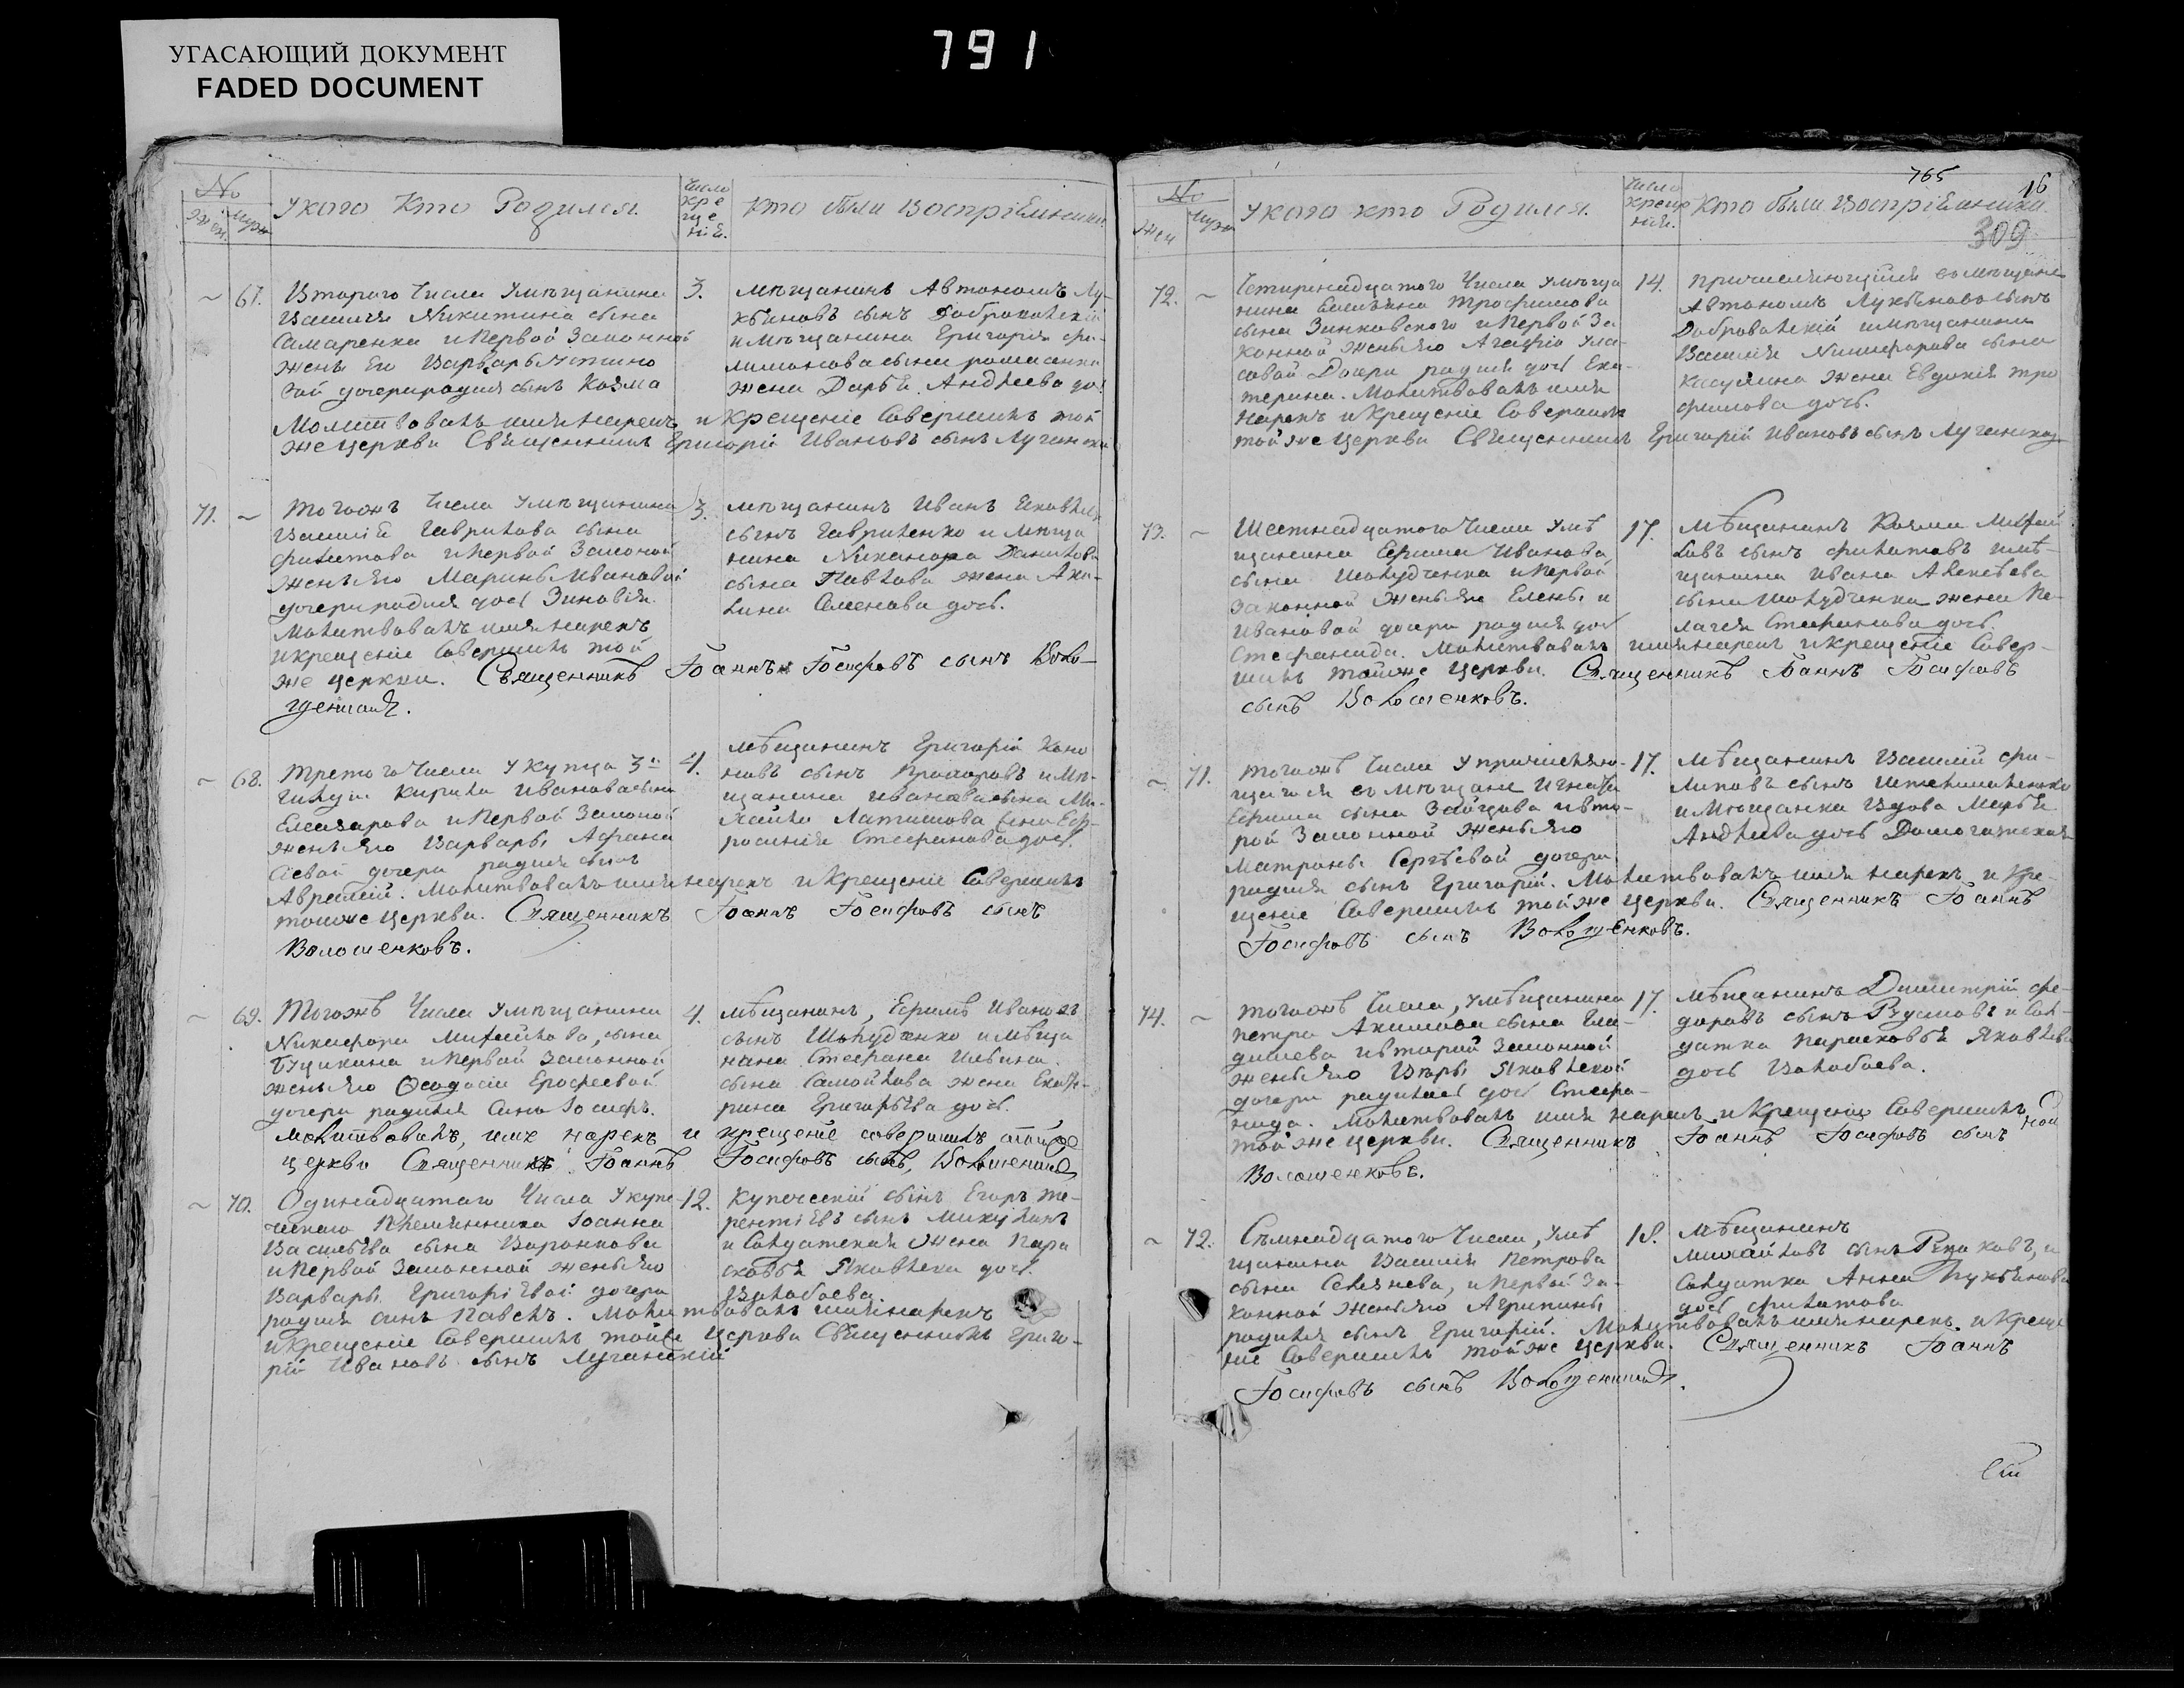 УГАСАЮЩИЙ ДОКУМЕНТ
FADED DOCUMENT
791
No
жен. муж.
У кого кто Родился.
Число кре ще нія.
Кто были Воспріемники.
67.
Втораго Числа Умѣщанина
Василія Никитина сына
Самаренка и Первой Законной
жены Его Варвары
дочери родился сынъ Козма
Молитвовалъ имя нарекъ и Крещеніе Совершилъ той
же Церкви Священникъ Григорій Ивановъ сынъ
3.
мѣщанинъ Автономъ Лу-
кьяновъ сынъ
и мѣщанина Григорія Фи-
лимонова сына
жена Дарья Андреева
71.
Тогожъ Числа Умѣщанина
Василія Гаврилова сына
Филатова и Первой Законой
жены его Марины Ивановой
дочери родися дочь Зиновія.
Молитвовалъ имя нарекъ
и крещеніе Совершилъ той
же церкви. Священникъ Іоаннъ Іосифовъ сынъ Воло-
3.
мѣщанинъ Иванъ
сынъ Гавриленко и Мѣща
нина Никанора Данилова
сына Павлова жена Аку-
лина Семенова дочь.
68.
Третьего Числа У купца 3й
Гильдіи Кирила Иванова сына
Елизарова и Первой Законой
жены его Варвары Афана
сіевой дочери родися сынъ
Молитвовалъ имя нарекъ и Крещеніе Совершилъ
тойже Церкви. Священникъ Іоаннъ Іосифовъ сынъ
Волошенковъ.
4.
мѣщанинъ Григорій Коно
новъ сынъ Прохоровъ и Мѣ-
щанина Иванова сына Ми-
хайла Латишова жена Еф-
росинія Стефанова дочь.
69.
Тогожъ Числа Умѣщанина
Никифора Михайлова, сына
и Первой Законной
жены его Феодосіи Ерофеевой
дочери родился Синъ Іосифъ.
молитвовалъ, имя нарекъ и крещеніе совершилъ тойже
церкви Священникъ Іоаннъ Іосифовъ сынъ,
4.
мѣщанинъ, Ермилъ Ивановъ
сынъ Шолудченко и мѣща
нина Стефана Ильина
сына Самойлова жена Екате-
рина Григорьева дочь.
70.
Одинадцатаго Числа У купе-
ческаго Племянника Іоанна
Васильева сына Воронкова
и Первой Законной жены его
Варвары Григорьевой дочери
родися синъ Павелъ. Молитвовалъ имя нарекъ
и Крещеніе Совершилъ тойже Церкви Священникъ Григо-
рій Ивановъ сынъ Луганскій
12.
Купеческій сынъ Егоръ Те-
рентіевъ сынъ Микулинъ
и Солдатская Жена Пара
сковья Яковлева дочь
Валабаева.
No
жен муж
У кого кто Родился.
Число Крещ нія.
Кто были Воспріемники.
765
16
309
72.
Четырнадцатого Числа Умѣща
нина Емельяна Трофимова
сына Зинковского и Первой За
конной жены его Агафіи
Дочери родися дочь Ека-
терина. Молитвовалъ имя
нарекъ и Крещеніе Совершилъ
той же Церкви Священникъ Григорій Ивановъ сынъ
14.
Причисляющійся въ мѣщане
Автономъ Лукьяновъ сынъ
Добровольскій и мѣщанина
Василія Никифорова сына
жена Евдокія Тро
фимова дочь.
73.
Шестнадцатого Числа Умѣ
щанина Ермила Иванова
сына Шолудченка и Первой
Законной жены его Елены
Ивановой дочери родися дочь
Стефанида. Молитвовалъ имя нарекъ и Крещеніе Совер-
шилъ тойже Церкви. Священникъ Іоаннъ Іосифовъ
сынъ Волошенковъ.
17.
Мѣщанинъ Козма Михай
ловъ сынъ Филатовъ и мѣ-
щанина Ивана Алексѣева
сына Шолудченка жена Пе-
лагея Стефанова дочь.
71.
Тогожъ Числа У причисляю-
щагося въ мѣщане Игната
Ермила сына Зайцова и вто-
рой Законной жены его
Матроны Сергѣевой дочери
родися сынъ Григорій. Молитвовалъ имя нарекъ и кре-
щеніе Совершилъ той же Церкви. Священникъ Іоаннъ
Іосифовъ сынъ Волошенковъ.
17.
Мѣщанинъ Василій Фи-
липовъ сынъ
и Мѣщанка Вдова Марья
Андреева дочь
74.
Тогожъ Числа, Умѣщанина
Петра Акимова сына Гла-
дишева и второй Законной
жены его Вѣры Яковлевой
дочери родилась дочь Стефа-
нида. Молитвовалъ имя нарекъ и Крещеніе Совершилъ
той же Церкви. Священникъ Іоаннъ Іосифовъ сынъ
Волошенковъ.
17.
Мѣщанинъ Димитрій Фе-
доровъ сынъ и Сол-
датка Парасковья Яковлева
дочь Валабаева.
72.
Семнадцатого Числа, Умѣ
щанина Василія Петрова
сына Селезнева, и Первой За-
конной жены его Агрипины
родися сынъ Григорій. Молитвовалъ имя нарекъ и Креще
ніе Совершилъ той же Церкви. Священникъ Іоаннъ
Іосифовъ сынъ
18.
Мѣщанинъ
Михайловъ сынъ и
Солдатка Анна Лукьянова
дочь Филатова